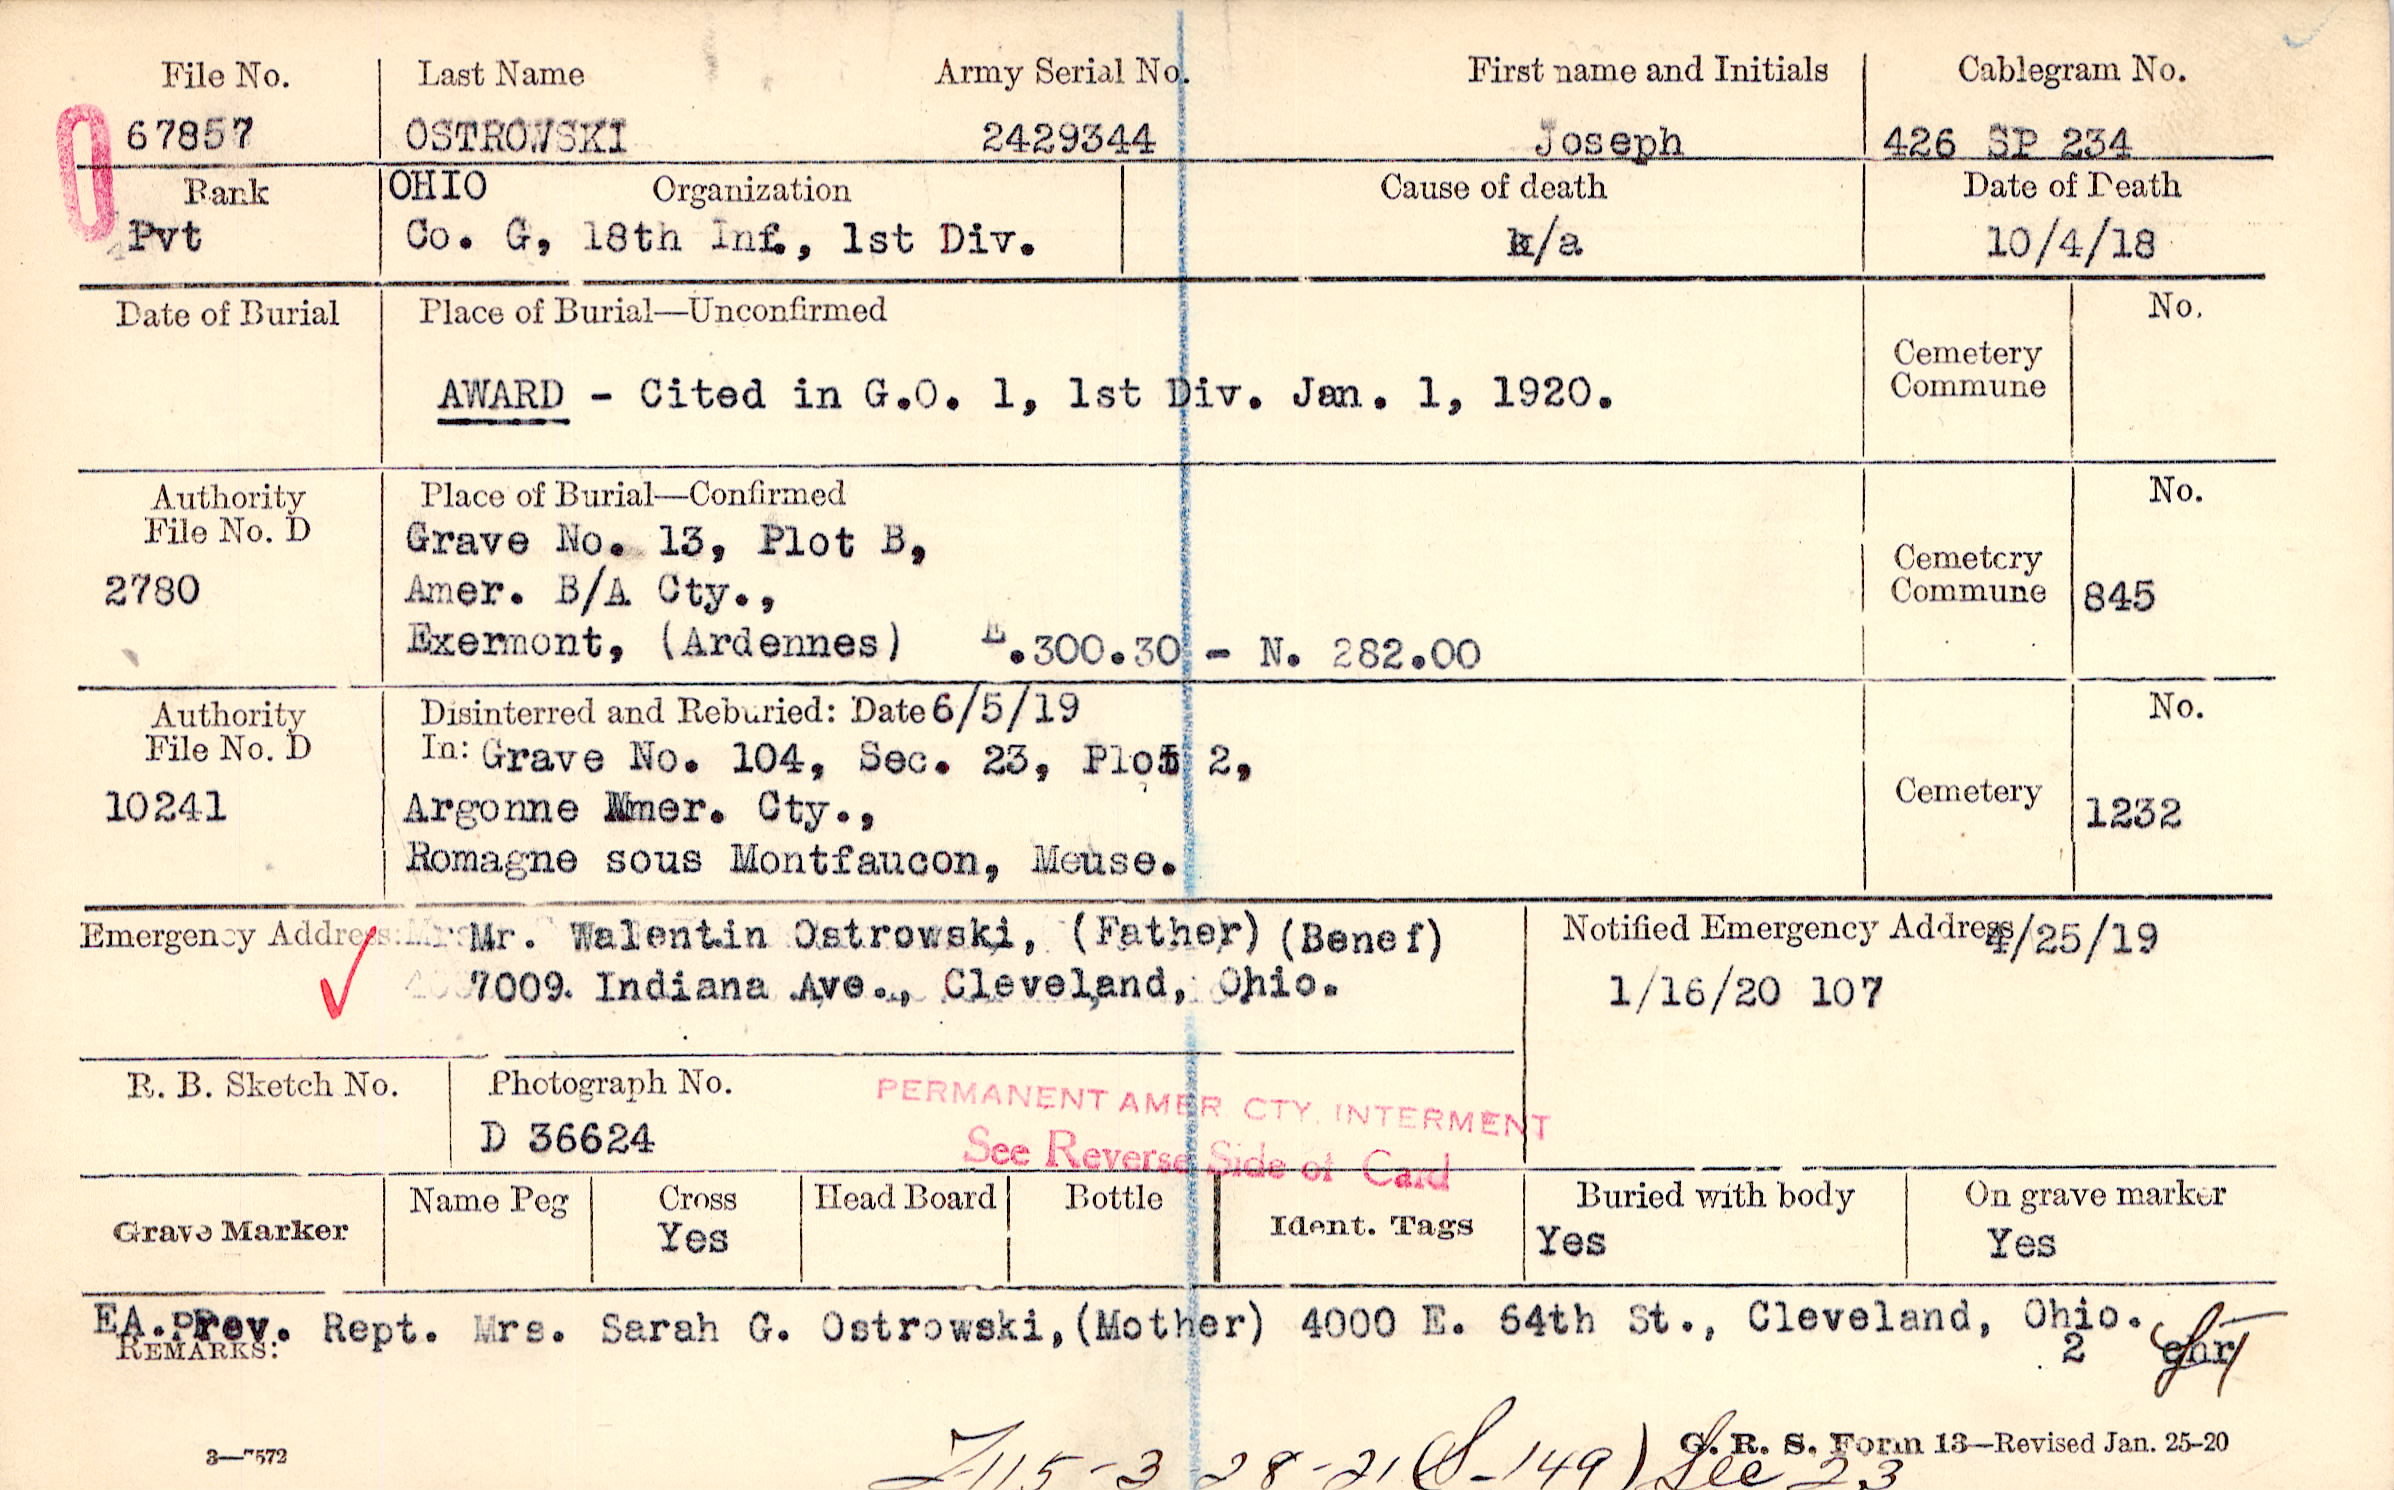 File No. Last Name Army Serial No. First name and Initials Cablegram No.
67857 OSTROWSKI 2429344 Joseph 426 SP 234
Rank OHIO Organization Cause of death Date of Death
Pvt Co. G, 18th Inf., 1st Div. k/a 10/4/18
Date of Burial Place of Burial—Unconfirmed No.
Cemetery
Commune
AWARD - Cited in G.O. 1, 1st Div. Jan. 1, 1920.
Authority Place of Burial—Confirmed No.
File No. D Grave No. 13, Plot B,
Cemetery
2780 Amer. B/A Cty., Commune 845
Exermont, (Ardennes) E.300.30 - N. 282.00
Authority Disinterred and Reburied: Date 6/5/19 No.
File No. D In: Grave No. 104, Sec. 23, Plot 2,
10241 Argonne Amer. Cty., Cemetery 1232
Romagne sous Montfaucon, Meuse.
Emergency Address: Mr. Walentin Ostrowski, (Father) (Benef) Notified Emergency Address 4/25/19
7009 Indiana Ave., Cleveland, Ohio. 1/16/20 107
R. B. Sketch No. Photograph No. PERMANENT AMER CTY. INTERMENT
D 36624 See Reverse Side of Card
Grave Marker Name Peg Cross Head Board Bottle Ident. Tags Buried with body On grave marker
Yes Yes Yes
EA. Prev. Rept. Mrs. Sarah G. Ostrowski, (Mother) 4000 E. 64th St., Cleveland, Ohio.
REMARKS: 2 ehr
3—7572 G. R. S. Form 13—Revised Jan. 25-20
3 28-21 (S-149) Sec 23